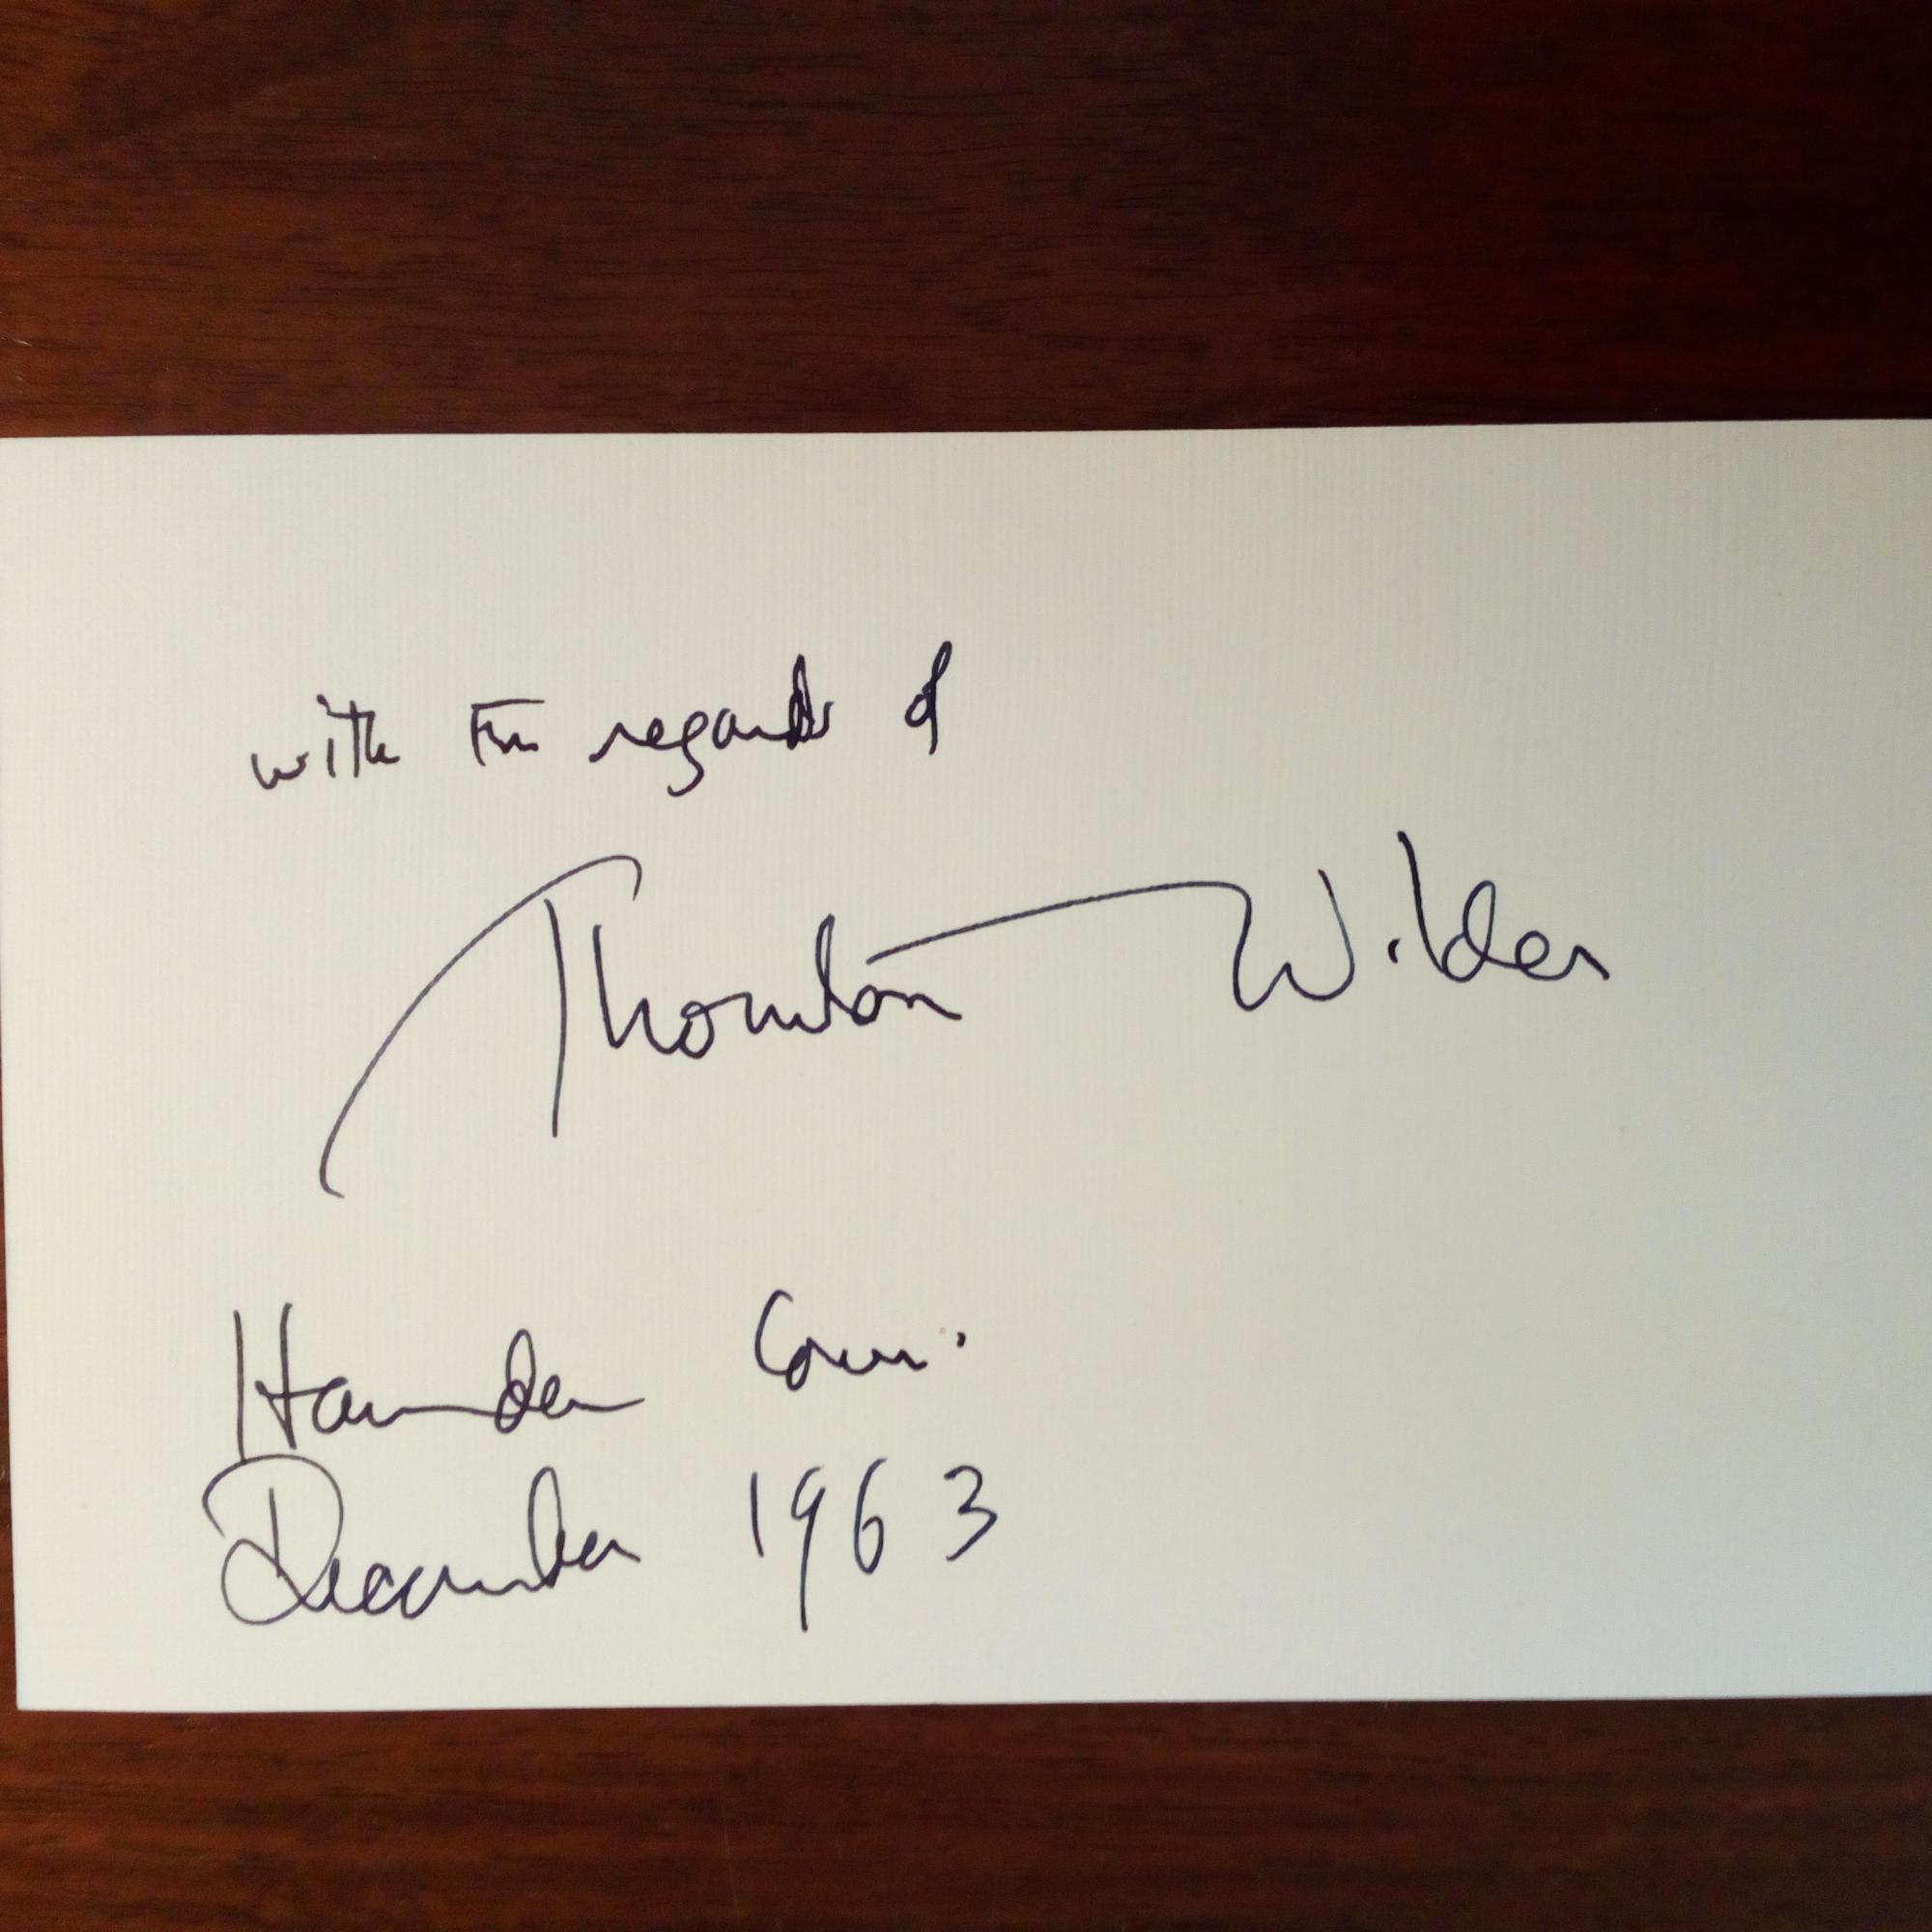 with the regards of
Thornton Wilder
Hamden Conn.
December 1963